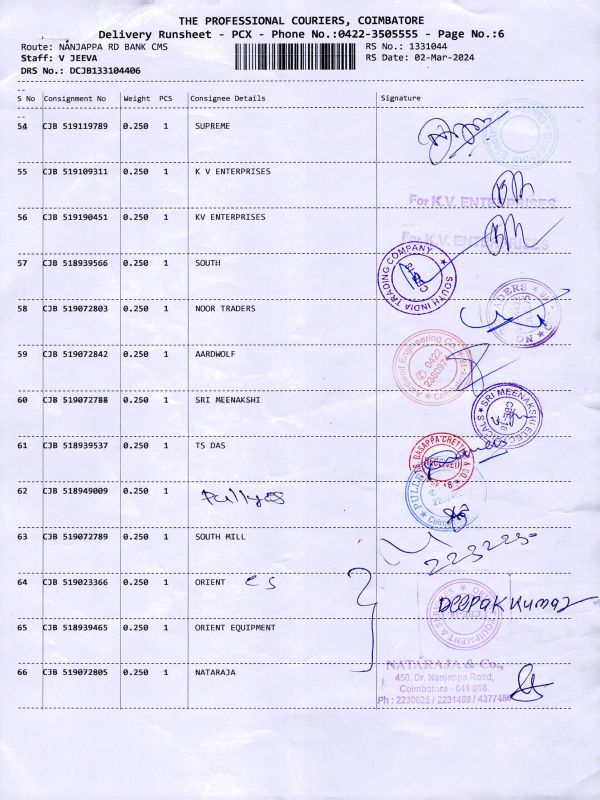 THE PROFESSIONAL COURIERS, COIMBATORE
Delivery Runsheet - PCX - Phone No.:0422-3505555 - Page No.:6
Route: NANJAPPA RD BANK CMS RS No.: 1331044
Staff: V JEEVA RS Date: 02-Mar-2024
DRS No.: DCJB133104406
S No Consignment No Weight PCS Consignee Details Signature
54 CJB 519119789 0.250 1 SUPREME
55 CJB 519109311 0.250 1 K V ENTERPRISES
For K.V. ENTERPRISES
56 CJB 519190451 0.250 1 KV ENTERPRISES
For K.V. ENTERPRISES
57 CJB 518939566 0.250 1 SOUTH
SOUTH INDIA TRADING COMPANY
58 CJB 519072803 0.250 1 NOOR TRADERS
59 CJB 519072842 0.250 1 AARDWOLF
0422
60 CJB 519072788 0.250 1 SRI MEENAKSHI
SRI MEENAKSHI ELECTRICALS
61 CJB 518939537 0.250 1 TS DAS
T.S. DASAPPA CHETTIAR & CO
RECEIVED
62 CJB 518949009 0.250 1 Pulleys
63 CJB 519072789 0.250 1 SOUTH MILL
223225
64 CJB 519023366 0.250 1 ORIENT es
Deepak Kumar
65 CJB 518939465 0.250 1 ORIENT EQUIPMENT
66 CJB 519072805 0.250 1 NATARAJA
NATARAJA & Co.,
450, Dr. Nanjappa Road,
Coimbatore - 641 018.
Ph : 2230825 / 2231489 / 4377486